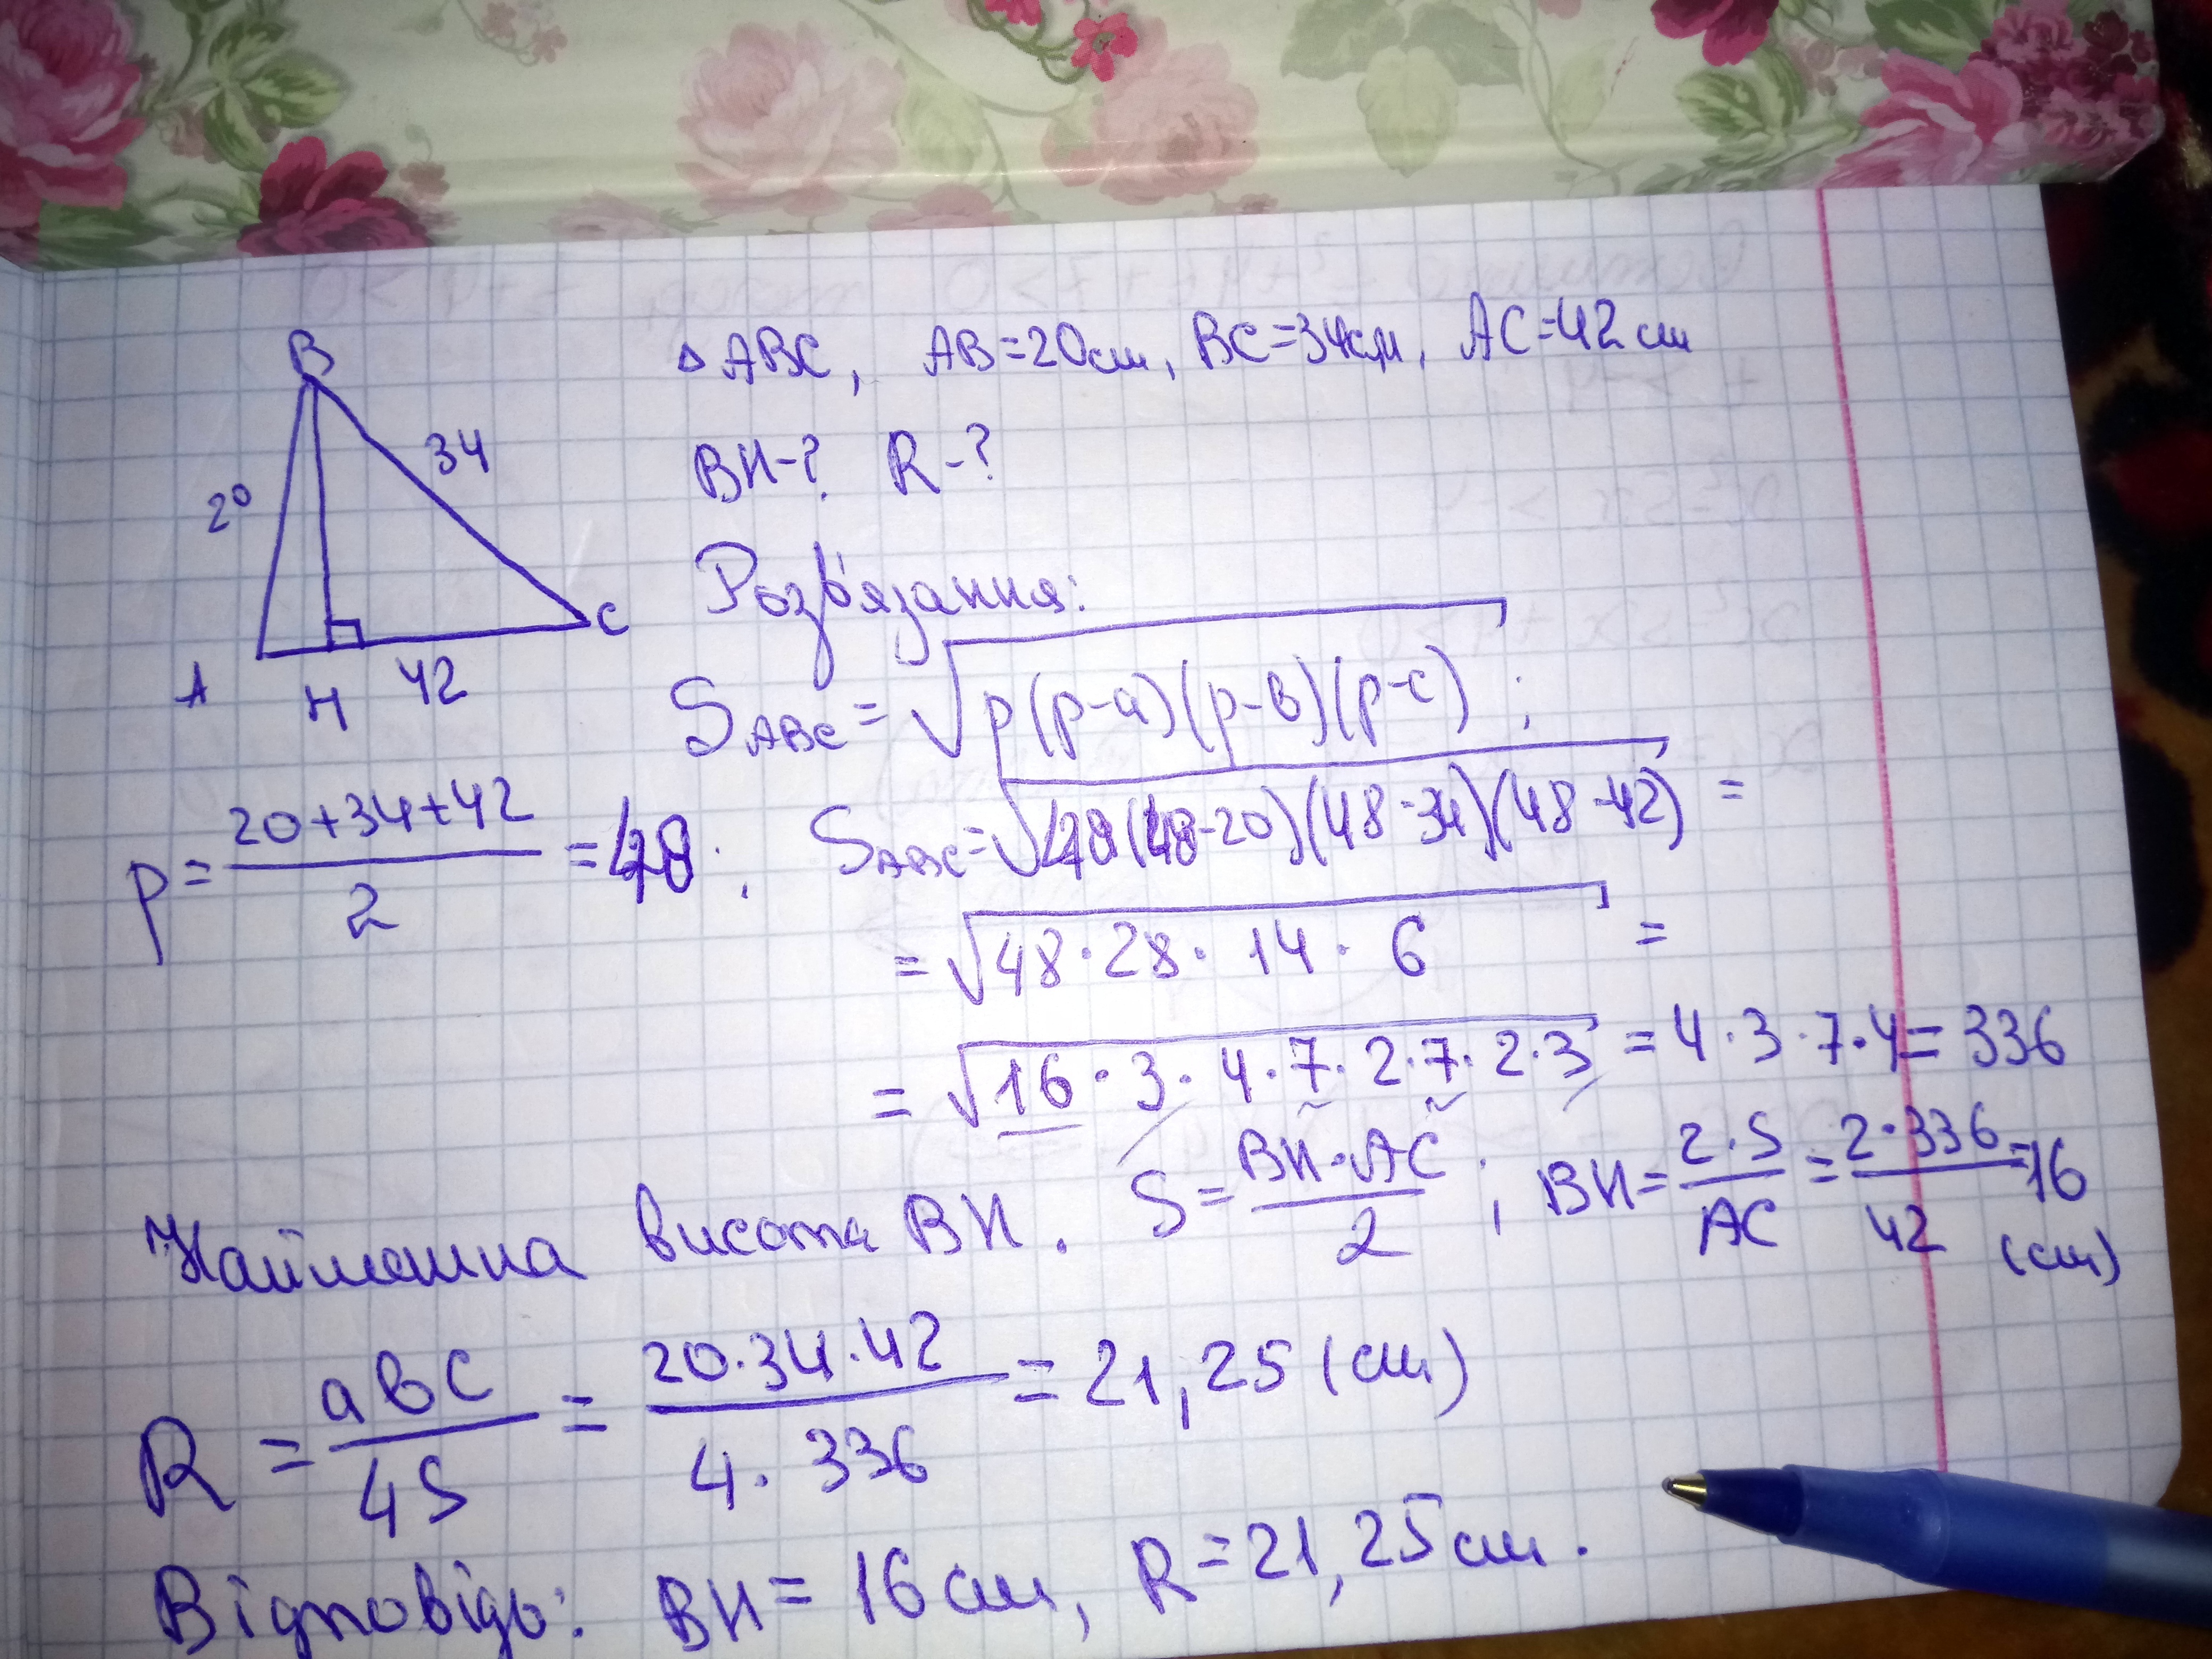 △ABC, AB=20см, BC=34см, AC=42см
BH-? R-?
B
34
20
A
H
42
C
Розв'язання:
S_ABC = √p(p-a)(p-в)(p-c) ;
p = (20+34+42)/2 = 48 ; S_ABC = √48(48-20)(48-34)(48-42) =
= √48·28·14·6 =
= √16·3·4·7·2·7·2·3 = 4·3·7·4 = 336
Найменша висота BH. S = BH·AC/2 ; BH = 2·S/AC = 2·336/42 = 16 (см)
R = aвc/4S = 20·34·42/4·336 = 21,25 (см)
Відповідь: BH = 16 см, R = 21,25 см.